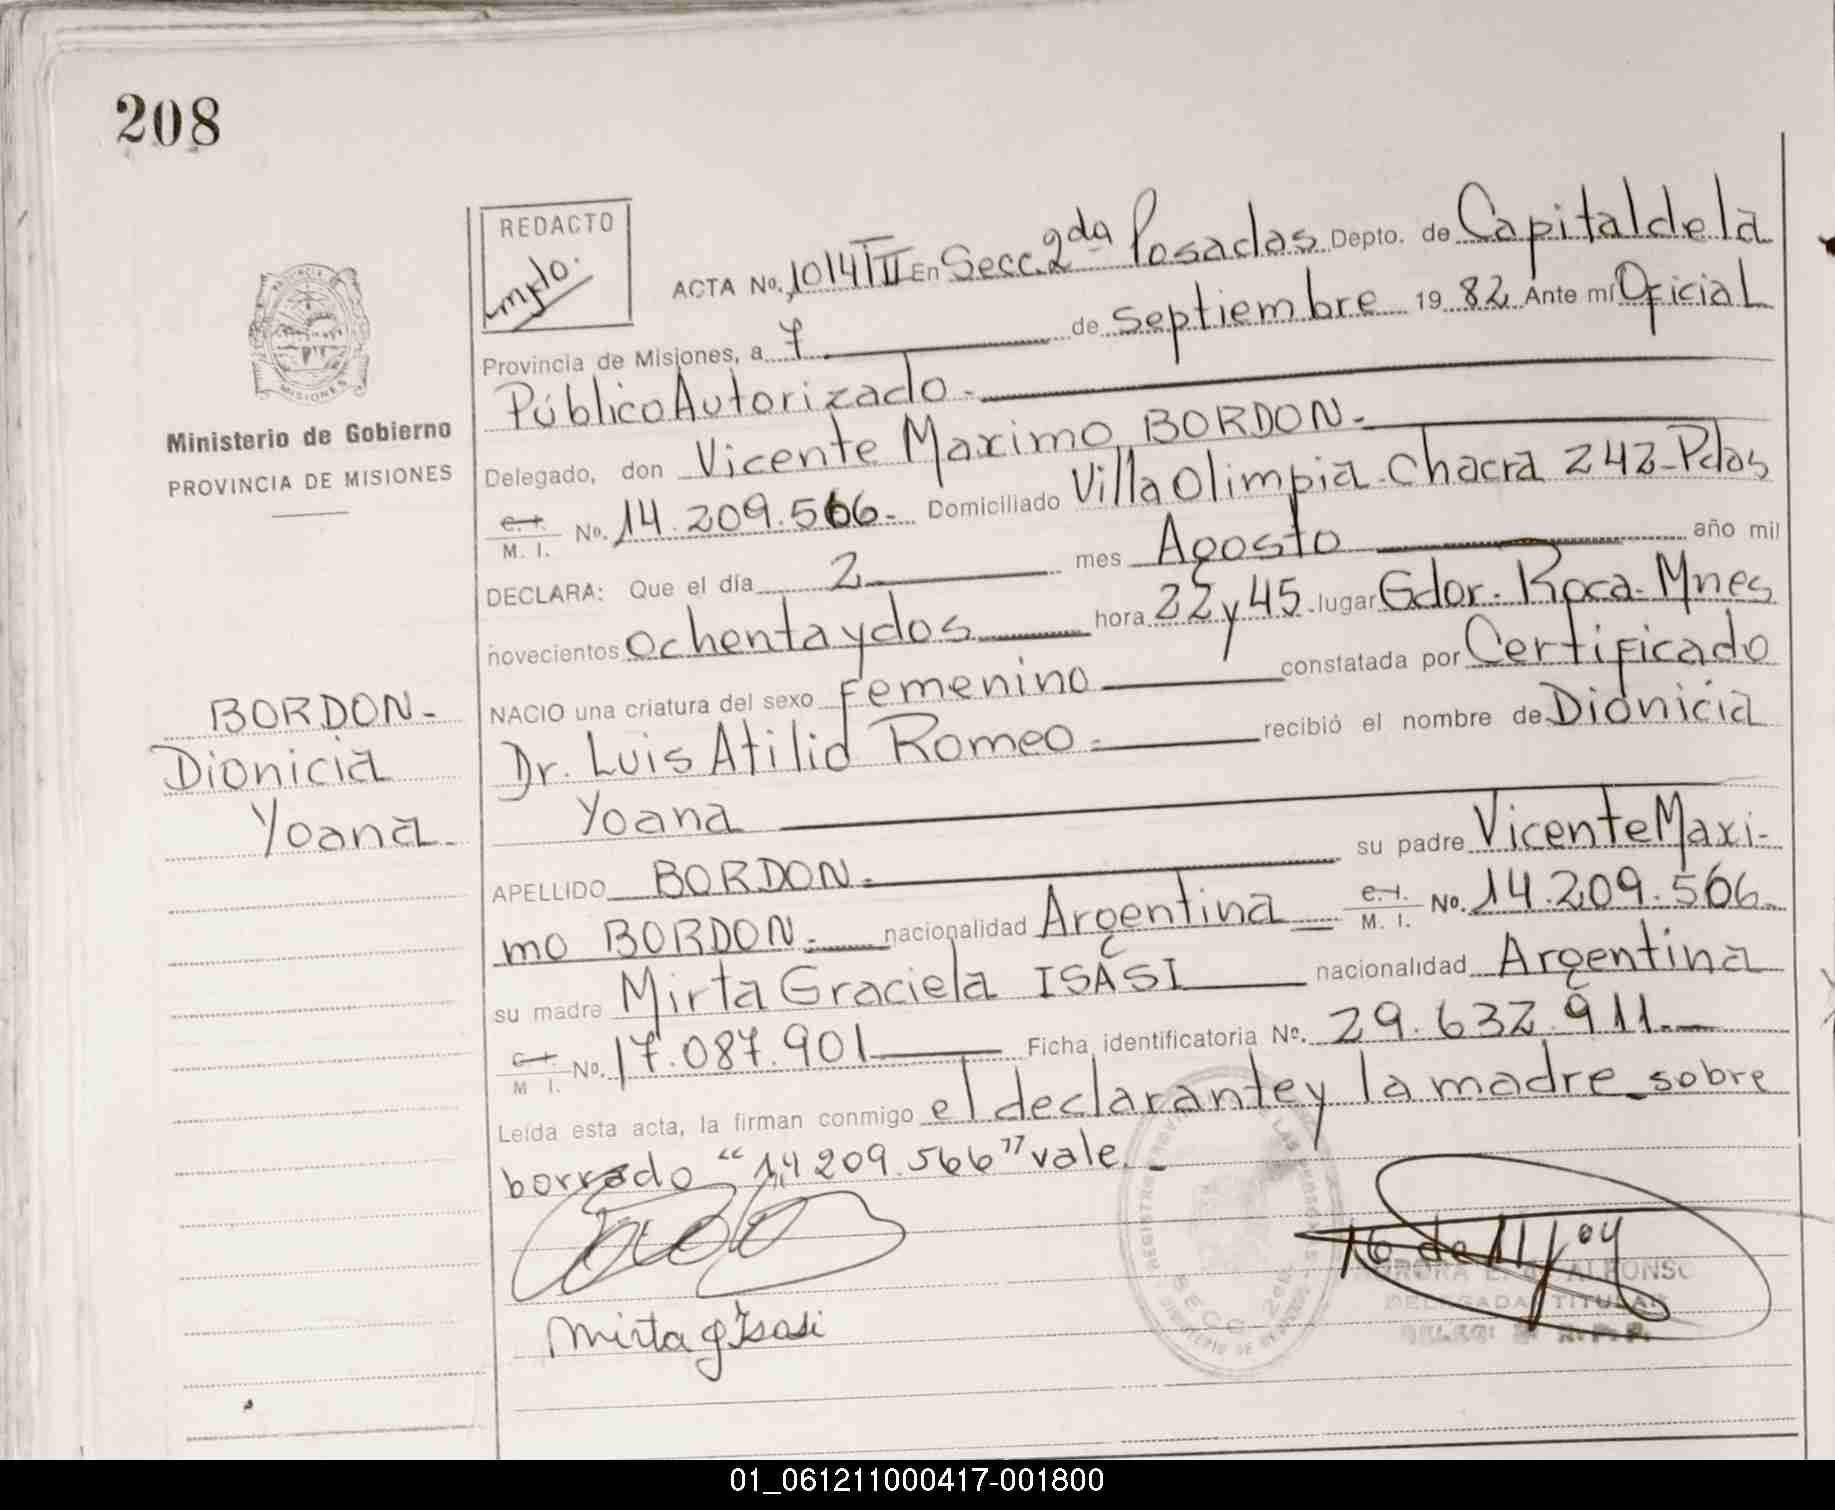 208
REDACTO
ACTA No. 1014 TII En Secc. 2da Posadas Depto. de Capital de la
Provincia de Misiones, a 7 de Septiembre 19 82 Ante mí Oficial
Público Autorizado.-
Ministerio de Gobierno
PROVINCIA DE MISIONES
MISIONES
Delegado, don Vicente Maximo BORDON.-
M. I. No. 14.209.566.- Domiciliado Villa Olimpia-Chacra 242-Pdas
DECLARA: Que el día 2 mes Agosto año mil
novecientos ochenta y dos hora 22 y 45 lugar Gdor. Roca-Mnes
NACIO una criatura del sexo Femenino constatada por Certificado
Dr. Luis Atilio Romeo.- recibió el nombre de Dionicia
Yoana
BORDON-
Dionicia
Yoana-
APELLIDO BORDON.- su padre Vicente Maxi-
mo BORDON.- nacionalidad Argentina C. I. M. I. No. 14.209.566-
su madre Mirta Graciela ISASI nacionalidad Argentina
C. I. M I. No. 17.087.901 Ficha identificatoria No. 29.632.911.-
Leída esta acta, la firman conmigo el declarante y la madre-sobre
borrado "14 209.566" vale.-
Mirta g Isasi
16 de 11/04
DELEGADA TITULAR
01_061211000417-001800